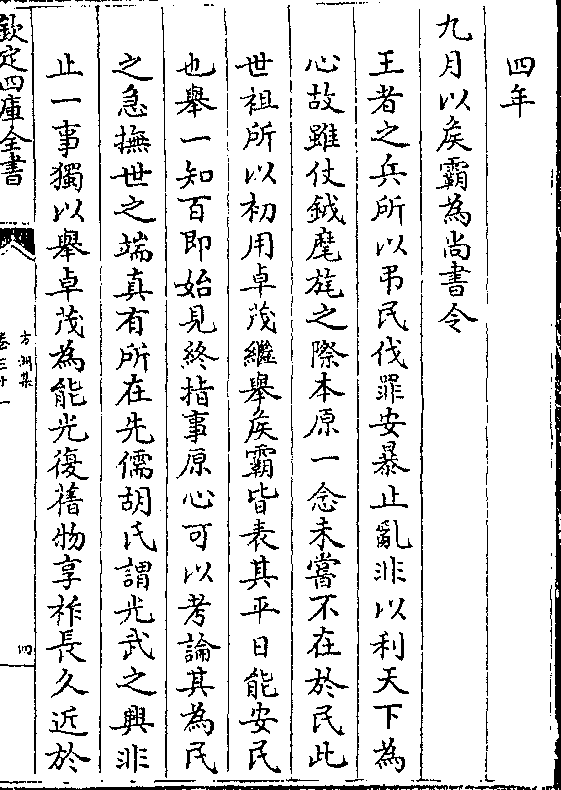 四年
九月以矦霸為尚書令
王者之兵所以弔民伐罪安暴止亂非以利天下為
心故雖仗鉞麾旄之際本原一念未嘗不在於民此
世祖所以初用卓茂繼舉矦霸皆表其平日能安民
也舉一知百即始見終指事原心可以考論其為民
之急撫世之端真有所在先儒胡氏謂光武之興非
止一事獨以舉卓茂為能光復舊物享祚長久近於
欽定四庫全書
方洲集
卷三十一
四